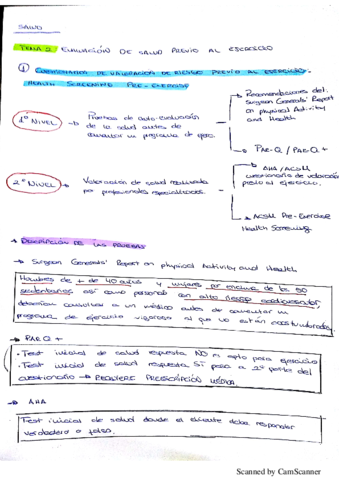 SALUD
TEMA 2. EVALUACIÓN DE SALUD PREVIO AL EJERCICIO
① CUESTIONARIO DE VALORACIÓN DE RIESGO PREVIO AL EJERCICIO.
HEALTH SCREENING PRE-EXERCISE
1º NIVEL → Pruebas de auto-evaluación de la salud antes de comenzar un programa de ejerc.
Recomendaciones del Surgeon Generals' Report on physical Activity and Health
PAR-Q / PAR-Q +
2º NIVEL → Valoración de salud realizada por profesionales especializados.
AHA / ACSM cuestionario de valoración previo al ejercicio.
ACSM Pre-Exercise Health Screening
→ DESCRIPCIÓN DE LAS PRUEBAS
→ Surgeon Generals' Report on physical Activity and Health
Hombres de + de 40 años y mujeres por encima de los 50
sedentarios así como personas con alto riesgo cardiovascular,
deberían consultar a un médico antes de comenzar un
programa de ejercicio vigoroso al que no están acostumbrados
→ PAR Q +
• Test inicial de salud respuesta NO → apto para ejercicio
• Test inicial de salud respuesta SI pasa a 2ª parte del
cuestionario → REQUIERE PRESCRIPCIÓN MÉDICA
→ AHA
Test inicial de salud donde el cliente debe responder
verdadero o falso.
Scanned by CamScanner